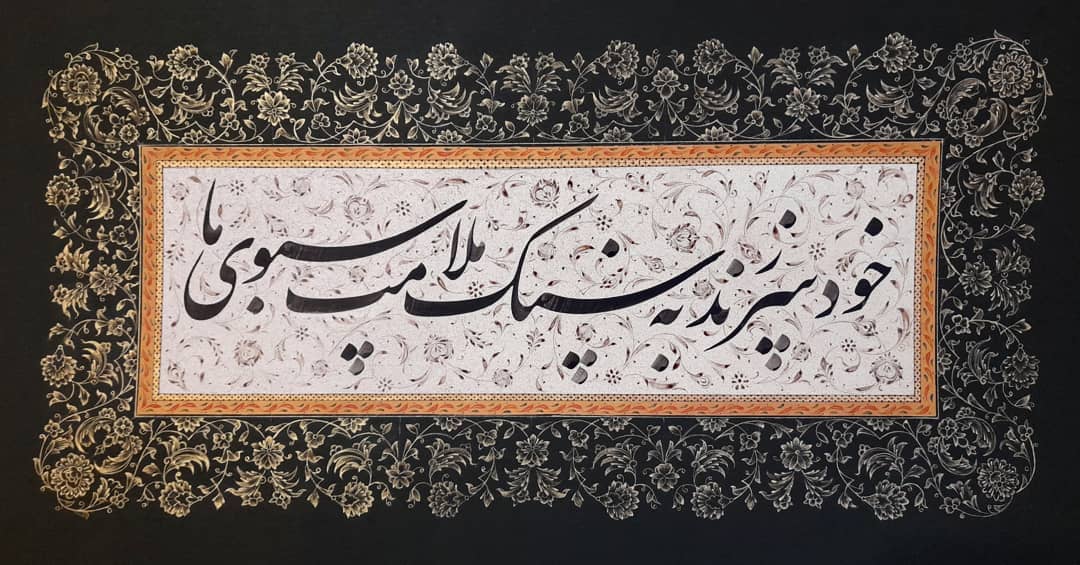 خود زند به سنگ ملامت سبوی ما